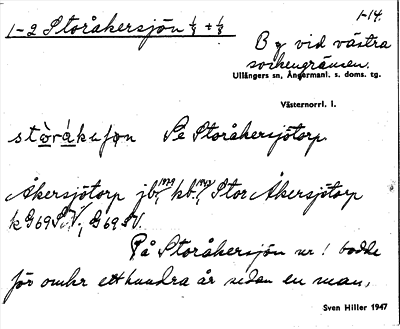 1-14.
1-2 Storåkersjön 1/4 + 1/8
B g vid västra
sockengränsen.
Ullångers sn, Ångermanl. s. doms. tg.
Västernorrl. l.
Se Storåkersjötorp
Åkersjötorp jb, kb, Stor Åkersjötorp
k G69SV, G69SV.
På Storåkersjön nr 1 bodde
för omkr ett hundra år sedan en man,
Sven Hiller 1947